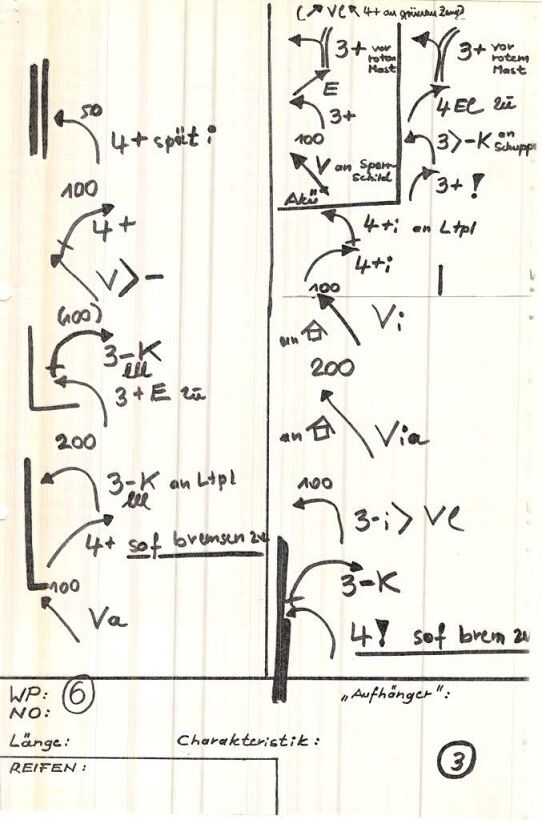 50
4+ spät i
100
4+
V > -
(100)
3-K
3+E zü
200
3-K an Ltpl
4+ sof bremsen zu
100
Va
(↗ Ve ↖ 4+ an grünen Zaun)
3+ vor
rotem
Mast
E
3+
100
V an Sperr
schild
Akü
3+ vor
rotem
Mast
4Ee zü
3>-K an
Schuppe
3+!
4+i an Ltpl
4+i
100
an
Vi
200
an
Via
100
3-i > Ve
3-K
4! sof brem zu
WP: 6
NO:
Länge:
Charakteristik:
REIFEN:
„Aufhänger":
3